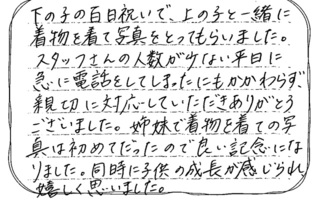 下の子の百日祝いで、上の子と一緒に
着物を着て写真をとってもらいました。
スタッフさんの人数が少ない平日に
急に電話をしてしまったにもかかわらず、
親切に対応していただきありがとう
ございました。姉妹で着物を着ての写
真は初めてだったので良い記念にな
りました。同時に子供の成長が感じられ
嬉しく思いました。